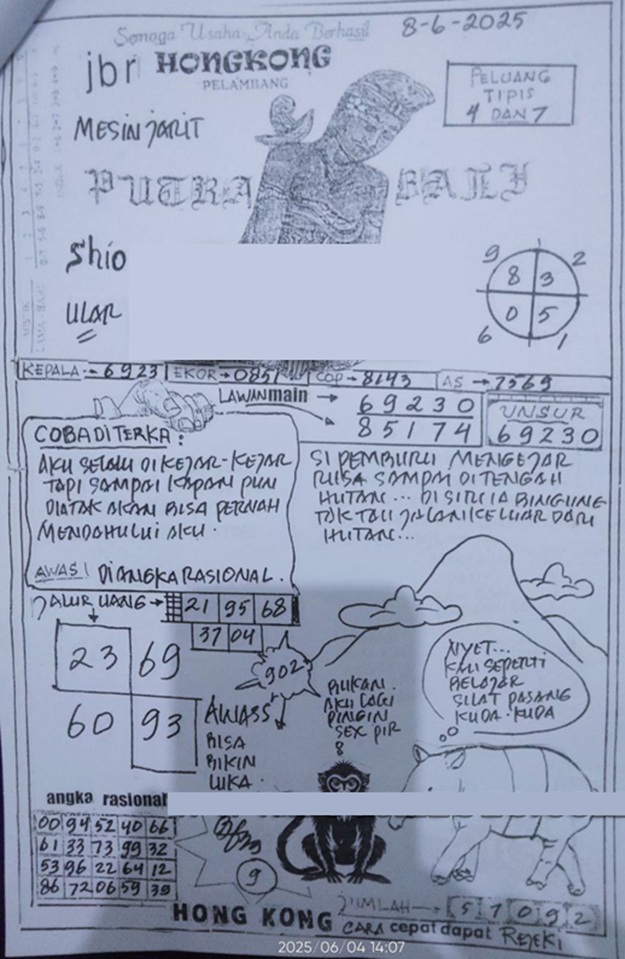 Semoga Usaha Anda Berhasil
8-6-2025
jbr HONGKONG
PELAMBANG
PELUANG
TIPIS
4 DAN 7
MESIN JARIT
PUTRA BALI
Shio
ULAR
9 1 2
8 3
0 5
6 1
KEPALA - 6923
EKOR → 0851
COP → 8143
AS → 7569
LAWANmain → 69230
85174
UNSUR
69230
COBA DITERKA :
AKU SELALU DI KEJAR-KEJAR
TAPI SAMPAI KAPAN PUN
DIATAK AKAN BISA PERNAH
MENDAHULUI AKU.
AWAS! DIANGKA RASIONAL.
SI PEMBURU MENGEJAR
RUSA SAMPAI DITENGAH
HUTAN... DI SIR IA BINGUNG
TAK TAU JALAN KELUAR DARI
HUTAN...
JALUR UANG → 21 95 68
37 04
23 69
60 93
902
AWASS
BISA
BIKIN
LUKA.
BUKAN.
AKU LAGI
PINGIN
SEX PIR
8
NYET...
KAU SEPERTI
BELAJAR
SILAT PASANG
KUDA-KUDA
angka rasional
00 94 52 40 66
61 33 73 99 32
53 96 22 64 12
86 72 06 59 39
9
JUMLAH → 51092
HONG KONG CARA cepat dapat REJEKI
2025/06/04 14:07